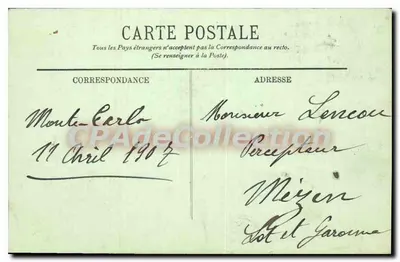 CARTE POSTALE
Tous les Pays étrangers n'acceptent pas la Correspondance au recto.
(Se renseigner à la Poste).
CORRESPONDANCE
ADRESSE
Monte-Carlo
11 Avril 1907
Monsieur Lencou
Percepteur
Mézin
Lot et Garonne
CPA Collection